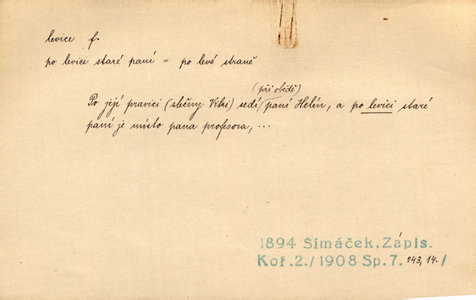 levice f.
po levici staré paní = po levé straně
(při obědě)
Po její pravici (slečny Vilmi) sedí /paní Helén, a po levici staré
paní je místo pana profesora, ...
1894 Šimáček, Zápis.
Koř.2./1908 Sp.7. 243, 14./